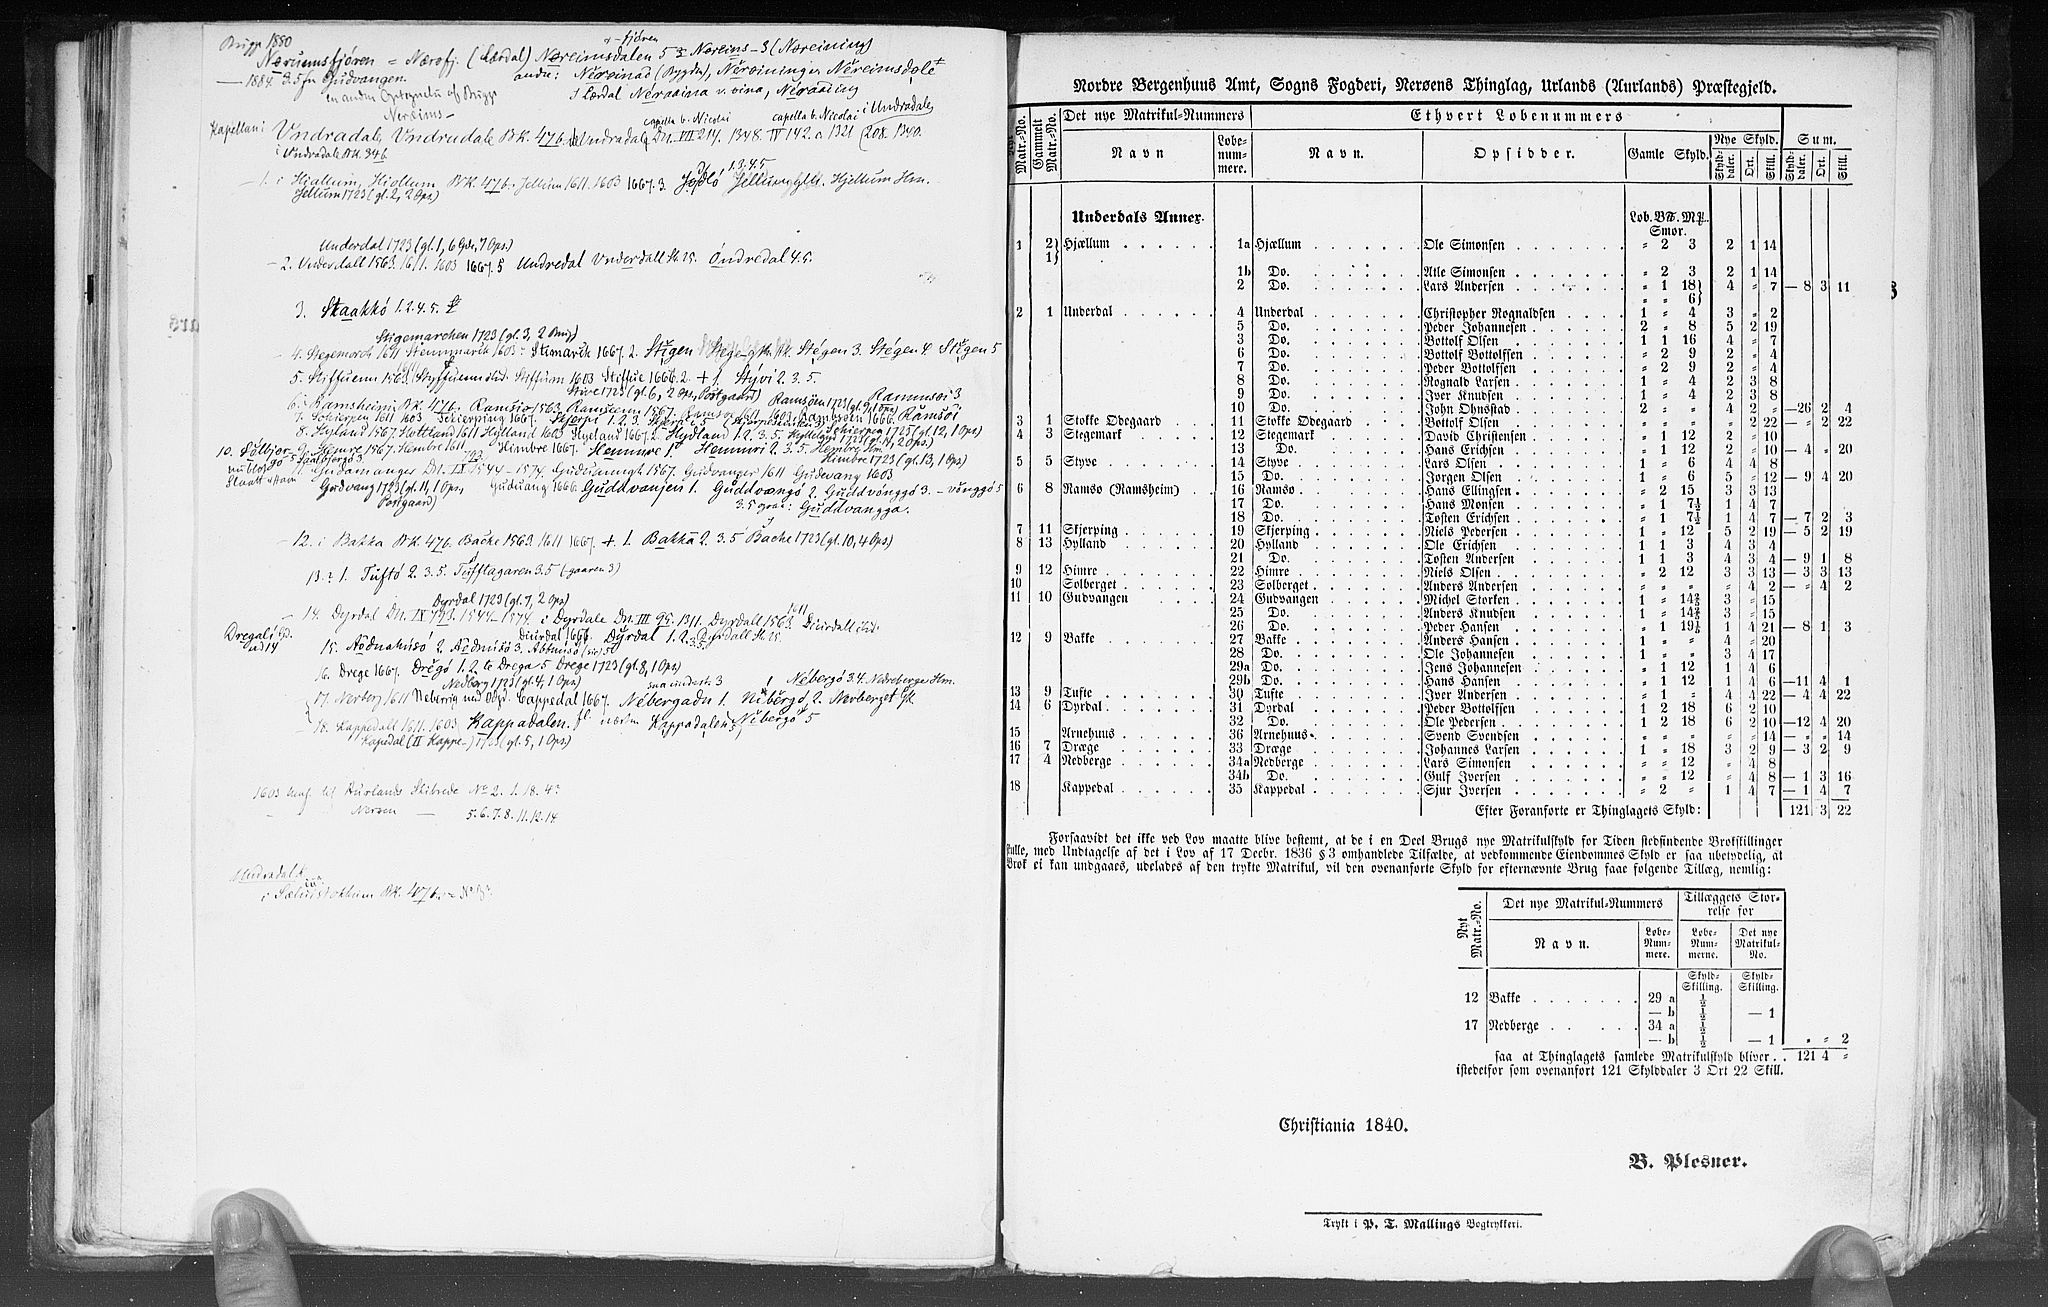 Brugg 1880
Næriumsfjören = Nærofj. (Lærdal) Næreimsdalen 5 Næreins-3 (Næreining)
+-fjören
1884. 3.5 fra Gudvangen.
en anden Optegnelse af Brugg
Nereims-
Kapellan i Vndradale Vndrudale BK. 476. Undradale Dn. VII 214. 1348. IV 142. 1321 (208. 1340.
capella b. Nicolai
capella b. Nicolai i Undradale
i Vndradale BK. 346
1. i Hiallum, Hiollum BK. 476. Jellum 1611. 1603 1667. 3. Hjellum Hm.
Jellum 1723 (gl. 2, 2 Ops)
Underdal 1723 (gl. 1, 6 Gde, 7 Ops.)
2. Underdall 1563. 1611. 1603 1667. 5 Undredal Underdall Sk. 25. Öndredal 4.5.
3. Staakkó 1.2.4.5.
Stigemarchen 1723 (gl. 3, 2 Brug)
4. Stegemorch 1611 Stemmarik 1603 Stimarik 1667. 2. Stigen Stege-gth. Stégen 3. Stégen 4. Stigen 5
5. Stiffuenn 1563. Styffuenn Stiffuin 1603 Stiffue 1666. 2. + 1. Stývi 2.3.5.
Stive 1723 (gl. 6, 2 Ops, Postgaard) Ramsöen 1723 (gl. 9, 1 Ops) Rammsöi 3
6. i Ramsheimi BK. 476. Ramsio 1563. Ramseim 1567. 1611. 1603. 1666. Ramsöi
7. Schirppen 1611 1603 Schierping 1667. Skjerpi 1.2.3. Skjerpi 5
Schierpen 1725 (gl. 12, 1 Ops)
8. Hyland 1567. Hottland 1611 Hylland 1603 Hyeland 1667. 2. Hydland 1.2.3.5. Hylleland 1723 (gl. 14, 2 Ops.)
10. Sölbjor- 9. Hemre 1567. Hembre 1611 Himbre 1667. Hemmre 1. Hemmri 2.3.5. Hembre Hm.
Himbre 1723 (gl. 13, 1 Ops)
Gudamanger Dn. IX 793 1544-1574. Guduangh 1567. Gudvanger 1611 Gudevang 1603
Gudvang 1723 (gl. 11, 1 Ops, Guduang 1666. Guddvanjen 1. Guddvængó 2. Guddvónggó 3. -vónggó 5
Postgaard)
3.5 ogsaa: Guddvangga.
12. i Bakka BK. 476. Backe 1563. 1611 1667. + 1. Bakkà 2.3.5 Bache 1723 (gl. 10, 4 Ops)
13. 1. Tuftó 2.3.5. Tufflagaren 3.5 (gaaren 3)
Dyrdal 1723 (gl. 7, 2 Ops)
14. Dyrdal Dn. IX 793. 1544-1574. i Dyrdale Dn. III 95. 1311. Dyrdall 1563. 1611
Diurdal 1666. Dýrdal 1.2.3.5. Dyrdall Sk. 25.
Dregali Gd.
ad 14
15. Aödnahúsó 2. Aödnúsó 3.
16. Drege 1667. Drégó 1.2. Drega 5 Drege 1723 (gl. 8, 1 Ops)
Nedberg 1723 (gl. 4, 1 Ops)
Nebergó 3.4. Nedreberge Hm.
17. Nerberg 1611 Neberrig Cappedal 1667. Nébergadn 1. Nibergó 2. Nerberget
18. Kappedall 1611. 1603. Kappadalen. Kappadalen 3. Nebergó 5
Kapedal (II Kappe-) 1723 (gl. 5, 1 Ops)
1603 Aurlands Skibrede No 2. 1. 18. 4
Nersen — 5.6.7.8.11.12.14
Undradal
i Sæluistokkum BK. 476.
Nordre Bergenhuus Amt, Sogns Fogderi, Nerøens Thinglag, Urlands (Aurlands) Præstegjeld.
Nyt Matr.-No. Gammelt Matr.-No. Det nye Matrikul-Nummers Ethvert Løbenummers
Navn Løbenummere. Navn. Opsidder. Gamle Skyld. Nye Skyld. Sum.
Skylddaler. Ort. Skill. Skylddaler. Ort. Skill.
Underdals Annex. Løb. Bß. Mß. Smør.
1 2} 1} Hjællum 1a Hjællum Ole Simonsen " 2 3 2 1 14
1b Do. Atle Simonsen " 2 3 2 1 14
2 Do. Lars Andersen " 1 18} " " 6} 4 " 7 — 8 3 11
2 1 Underdal 4 Underdal Christopher Rognaldsen 1 " 4 3 " 2
5 Do. Peder Johannesen 2 " 8 5 2 19
3 Do. Bottolf Olsen 1 1 16 4 " 7
6 Do. Bottolf Bottolfsen " 2 9 2 " 4
7 Do. Peder Bottolfsen " 2 9 2 " 4
8 Do. Rognald Larsen 1 " 4 2 3 8
9 Do. Iver Knudsen 1 " 4 2 3 8
10 Do. John Ohnstad 2 " " 4 2 " —26 2 4
3 1 Stokke Ødegaard 11 Stokke Ødegaard Bottolf Olsen " " " " 2 22 — " 2 22
4 3 Stegemark 12 Stegemark David Christensen " 1 12 2 " 10
13 Do. Hans Erichsen " 1 12 2 " 10 — 4 " 20
5 5 Styve 14 Styve Lars Olsen 1 " 6 4 4 8
15 Do. Jørgen Olsen 1 " 6 5 " 12 — 9 4 20
6 8 Ramsø (Ramsheim) 16 Ramsø Hans Ellingsen " 2 15 3 3 13
17 Do. Hans Monsen " 1 7½ 1 4 7
18 Do. Tosten Erichsen " 1 7½ 1 4 7 — 7 2 3
7 11 Skjerping 19 Skjerping Niels Pedersen 1 " 12 5 2 19 — 5 2 19
8 13 Hylland 20 Hylland Ole Erichsen 1 1 3 4 3 4
21 Do. Tosten Andersen 1 1 3 4 3 4 — 9 1 8
9 12 Himre 22 Himre Niels Olsen " 2 12 3 3 13 — 3 3 13
10 Solberget 23 Solberget Anders Andersen " " " " 4 2 — " 4 2
11 10 Gudvangen 24 Gudvangen Michel Storken 1 " 14⅖ 3 " 15
25 Do. Anders Knudsen 1 " 14⅖ 3 " 15
26 Do. Peder Hansen " 1 19⅕ 1 4 21 — 8 1 3
12 9 Bakke 27 Bakke Anders Hansen 1 " " 4 " 20
28 Do. Ole Johannesen 1 " " 3 4 17
29a Do. Jens Johannesen " 1 12 1 4 6
29b Do. Hans Hansen " 1 12 1 4 6 —11 4 1
13 9 Tufte 30 Tufte Iver Andersen " 1 " 4 4 22 — 4 4 22
14 6 Dyrdal 31 Dyrdal Peder Bottolfsen 1 2 18 6 2 10
32 Do. Ole Pedersen 1 2 18 6 2 10 —12 4 20
15 Arnehuus 36 Arnehuus Svend Svendsen " " " " " 14 — " " 14
16 7 Dræge 33 Dræge Johannes Larsen 1 " 18 3 2 9 — 3 2 9
17 4 Nedberge 34a Nedberge Lars Simonsen " " 12 " 4 8
34b Do. Gulf Iversen " " 12 " 4 8 — 1 3 16
18 Kappedal 35 Kappedal Sjur Iversen " 2 " 1 4 7 — 1 4 7
Efter Foranførte er Thinglagets Skyld: 121 3 22
Forsaavidt det ikke ved Lov maatte blive bestemt, at de i en Deel Brugs nye Matrikulskyld for Tiden stedfindende Brøkskillinger
skulle, med Undtagelse af det i Lov af 17 Decbr. 1836 § 3 omhandlede Tilfælde, at vedkommende Eiendommes Skyld er saa ubetydelig, at
Brøk ei kan undgaaes, udelades af den trykte Matrikul, vil den ovenanførte Skyld for efternævnte Brug faae følgende Tillæg, nemlig:
Nyt Matr.-No. Det nye Matrikul-Nummers Tillæggets Størrelse for
Navn. Løbe-Nummere. Løbe-Nummerne. Det nye Matrikul-No.
Skyld-Skilling. Skyld-Skilling.
12 Bakke 29 a ½
— b ½ — 1
17 Nedberge 34 a ½
— b ½ — 1 " " 2
saa at Thinglagets samlede Matrikulskyld bliver 121 4 "
istedetfor som ovenanført 121 Skylddaler 3 Ort 22 Skill.
Christiania 1840.
B. Plesner.
Trykt i P. T. Mallings Bogtrykkeri.